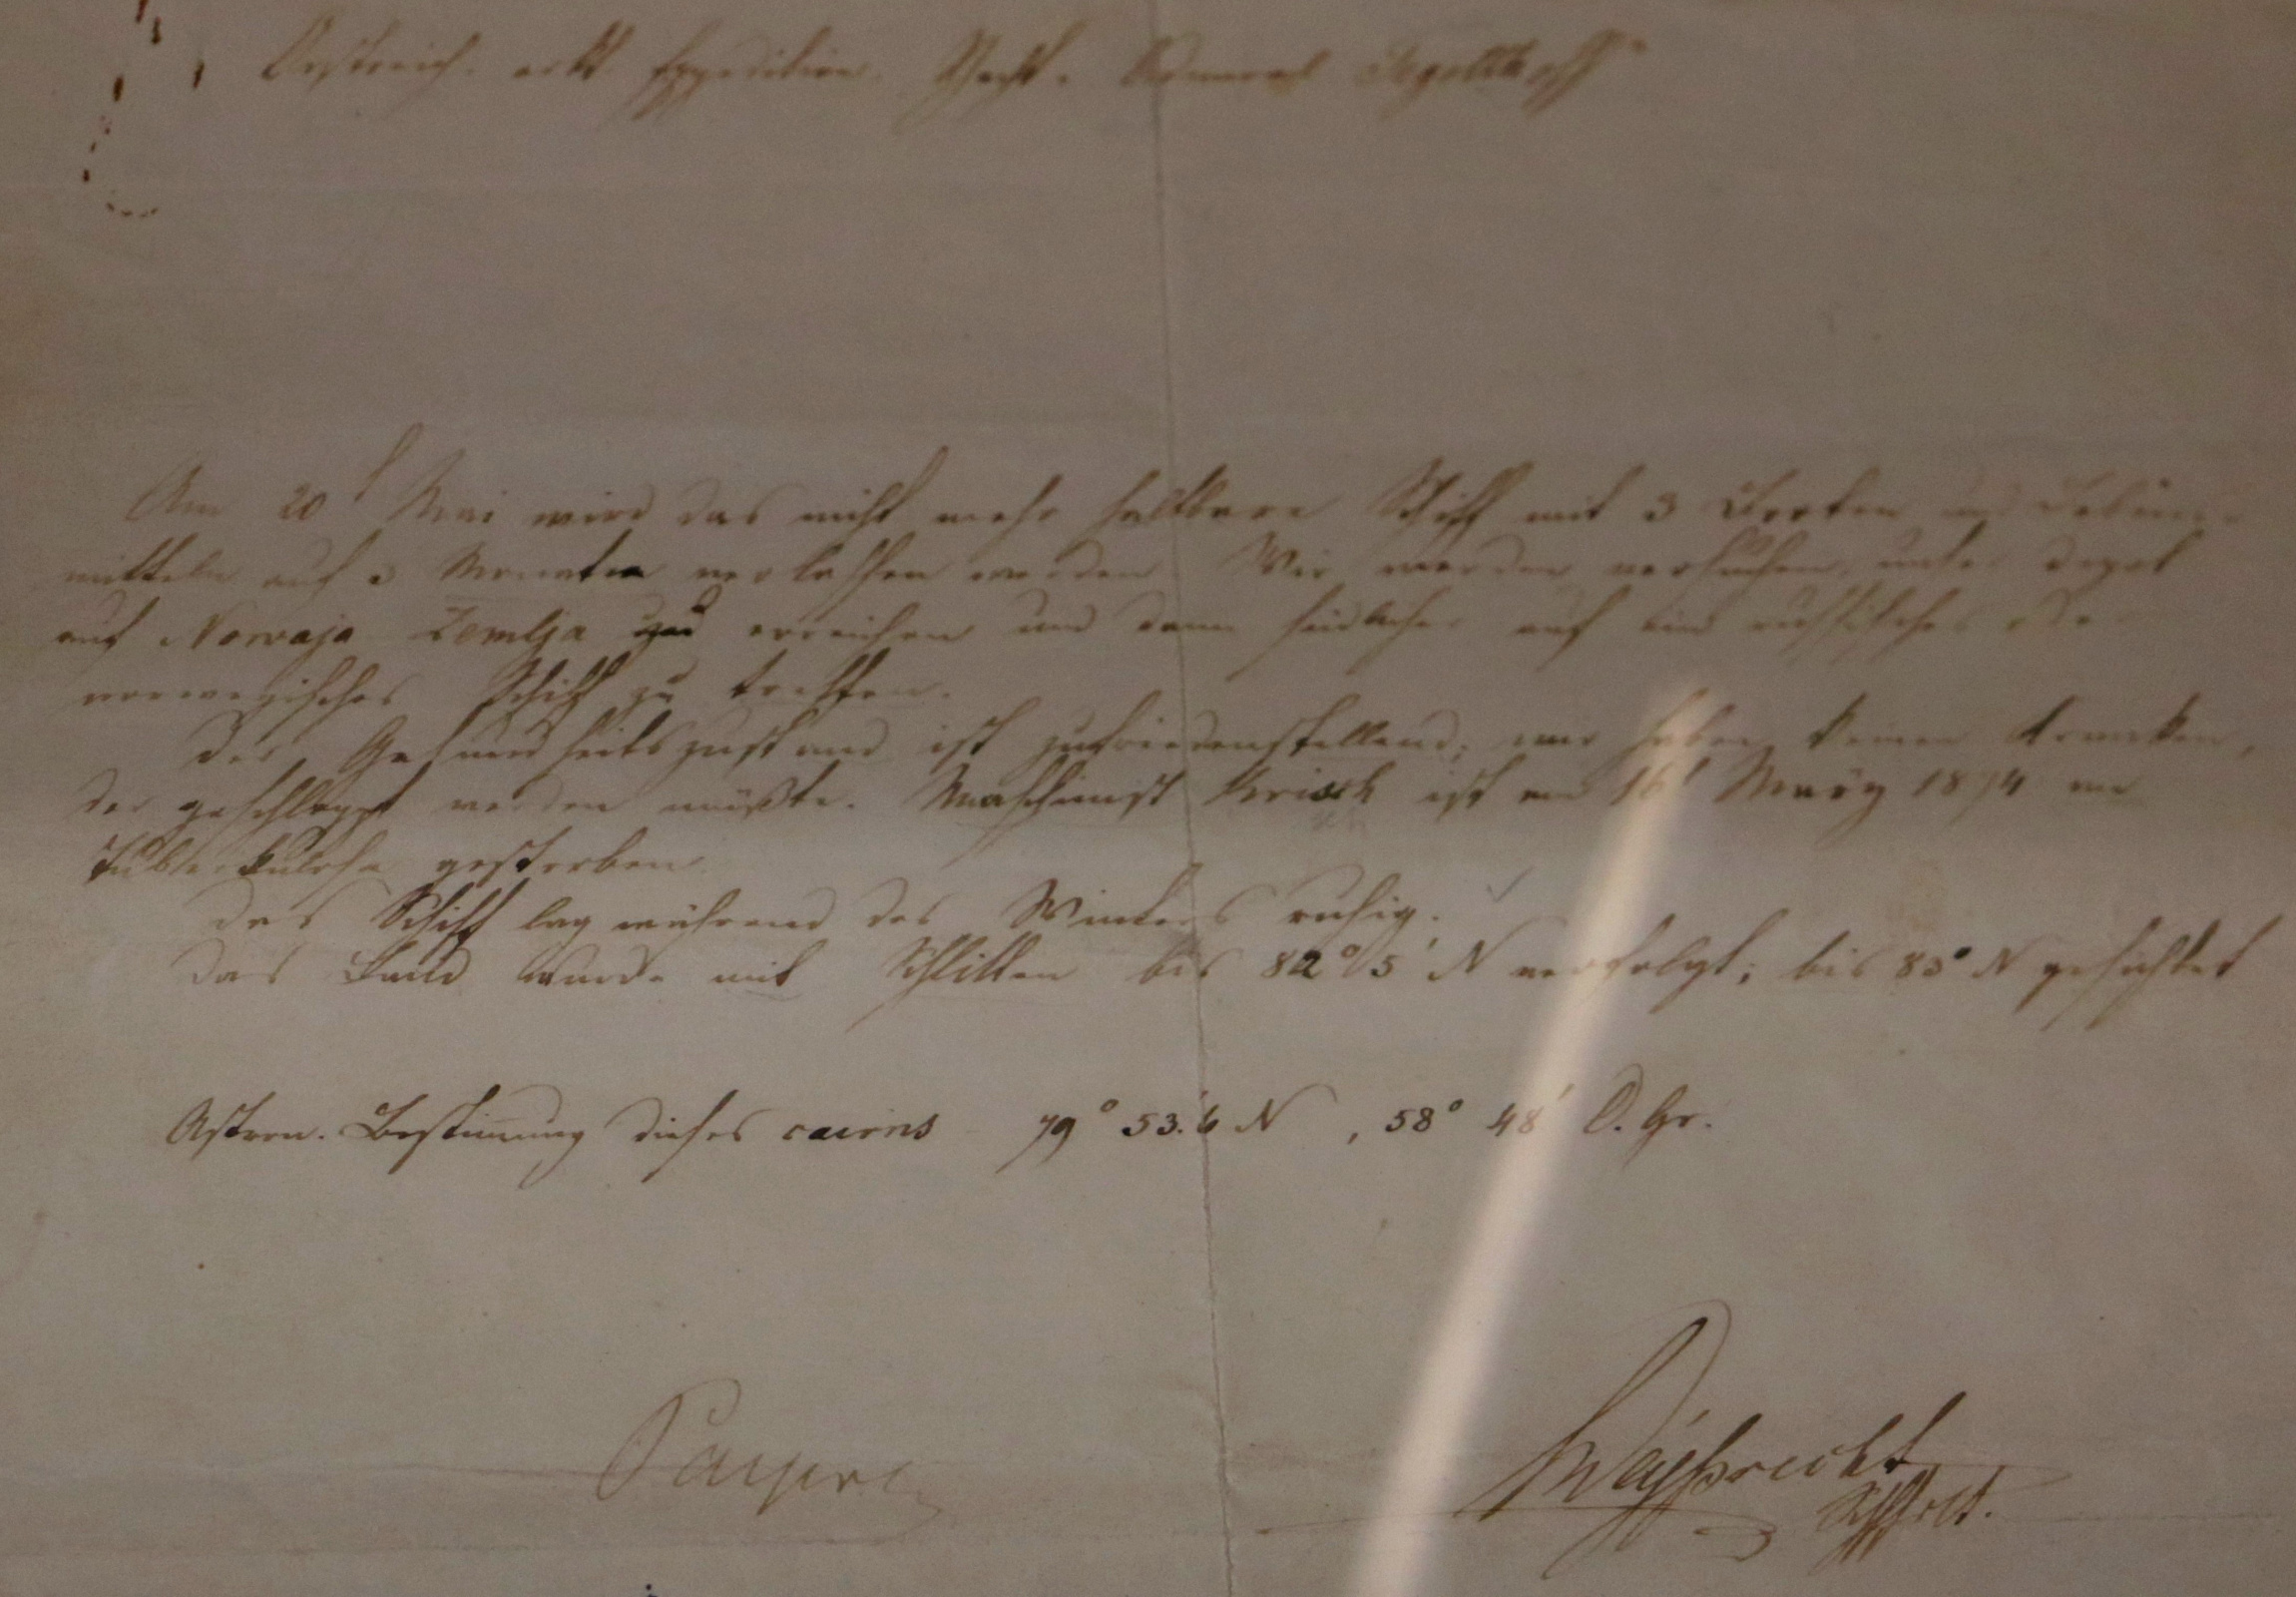 Oestreich. arkt. Expedition. Yacht „Admiral Tegetthoff“
Am 20t Mai wird das nicht mehr haltbare Schiff mit 3 Booten und Lebens-
mitteln auf 3 Monaten verlassen werden. Wir werden versuchen, unser Depot
auf Nowaja Zemlja zu erreichen und dann südlicher auf ein russisches oder
norwegisches Schiff zu treffen.
Der Gesundheitszustand ist zufriedenstellend; wir haben keinen Kranken,
der geschleppt werden müßte. Maschinist Krisch ist am 16t März 1874 an
Tuberkulose gestorben.
Das Schiff lag während des Winters ruhig.
Das Land wurde mit Schlitten bis 82° 5' N verfolgt; bis 83° N gesichtet
Astron. Bestimmung dieses cairns 79° 53.'6 N, 58° 48' O. Gr.
Payer
Weyprecht